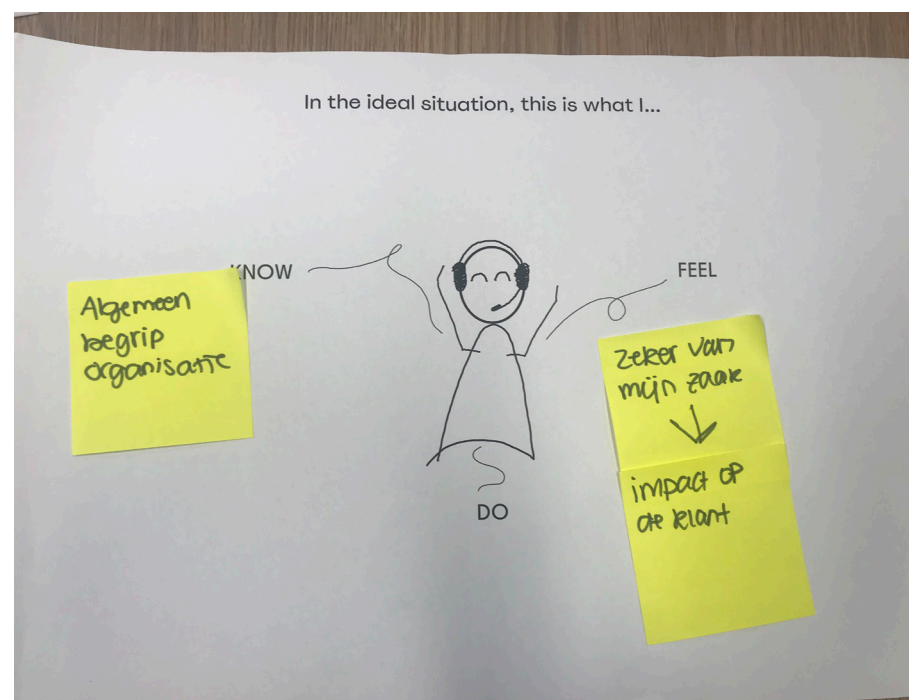 In the ideal situation, this is what I...
KNOW
FEEL
Algemeen
begrip
organisatie
zeker van
mijn zaak
impact op
de klant
DO